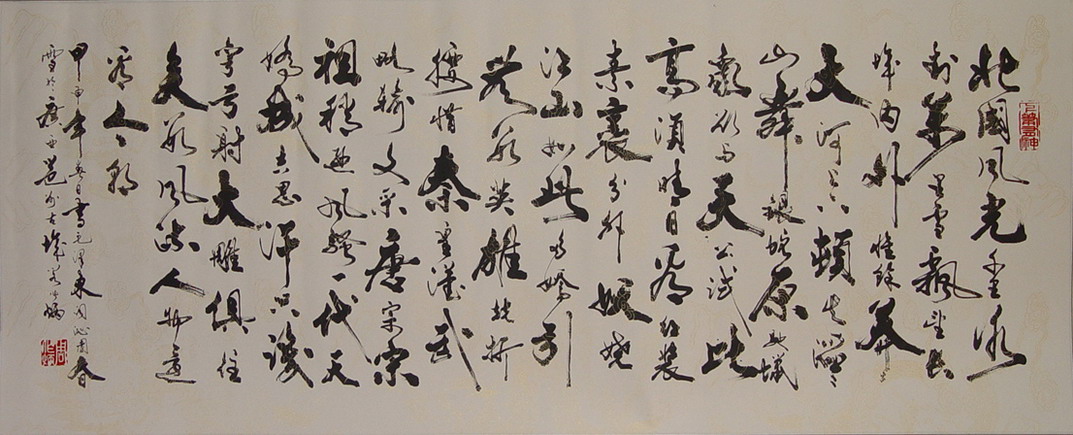 北国风光千里冰
封万里雪飘望长
城内外惟余莽々
大河上下顿失滔々
山舞银蛇原驰蜡
象欲与天公试比
高须晴日看红装
素裹分外妖娆
江山如此多娇引
无数英雄竞折
腰惜秦皇汉武
略输文采唐宗宋
祖稍逊风骚一代天
骄成吉思汗只识
弯弓射大雕俱往
矣数风流人物还
看今朝
甲申年春日书毛泽东词沁园春
雪于